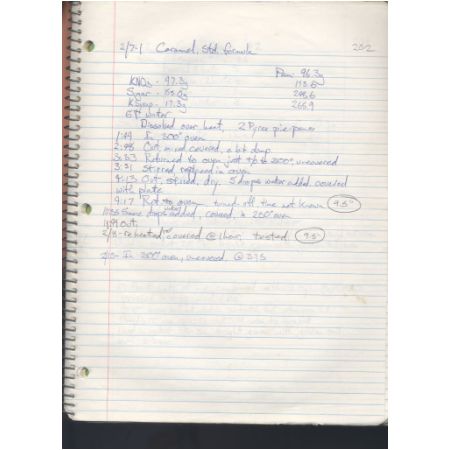 2/7-1 Caramel, Std. formula 202
KNO3 - 97.3g Pan: 96.3g
Sugar - 55.0g 175.6
K Syrup - 17.3g 248.6
6T water 265.9
Dissolved over heat, 2 Pyrex pie-pans
1:49 In 300° oven
2:48 Out, mixed, covered, a bit damp
3:03 Returned to oven, just to 200°, uncovered
3:31 Stirred, in oven
4:13 Out, stirred, dry. 5 drops water added, covered
with plate
9:17 Ret to oven turned off, time not known 9.5"
Some drops added, covered, in 200° oven
Out.
2/8 - reheated, covered @ 1 hour, tested 9.5"
In 300° oven, uncovered @ 3:35